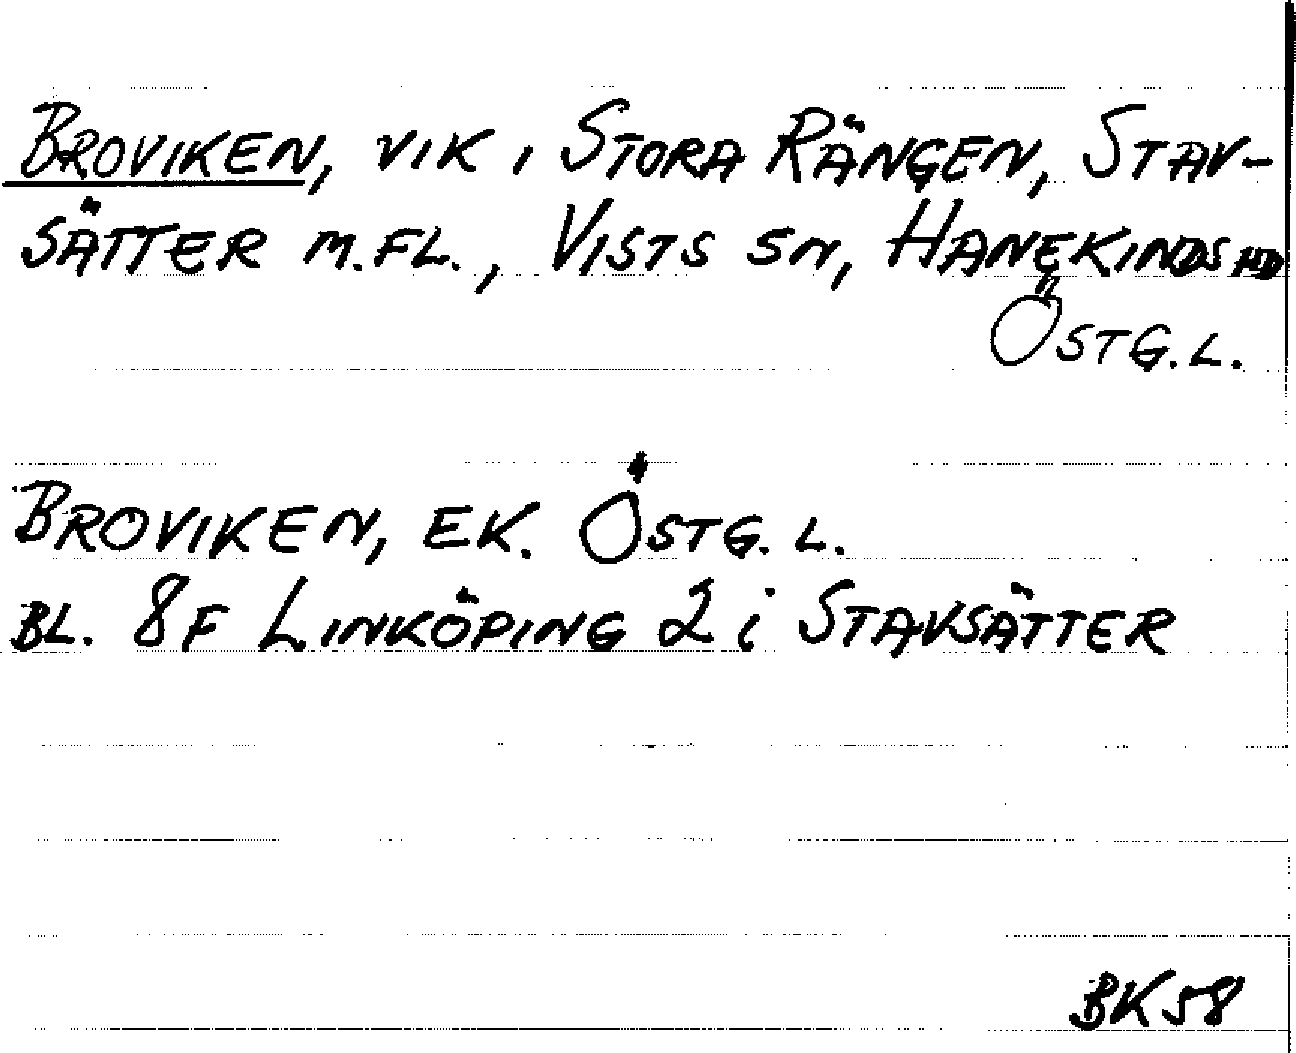 BROVIKEN, VIK I STORA RÄNGEN, STAV-
SÄTTER M.FL., VISTS SN, HANEKINDS HD
ÖSTG.L.
BROVIKEN, EK. ÖSTG. L.
BL. 8F LINKÖPING 2 i STAVSÄTTER
BK58